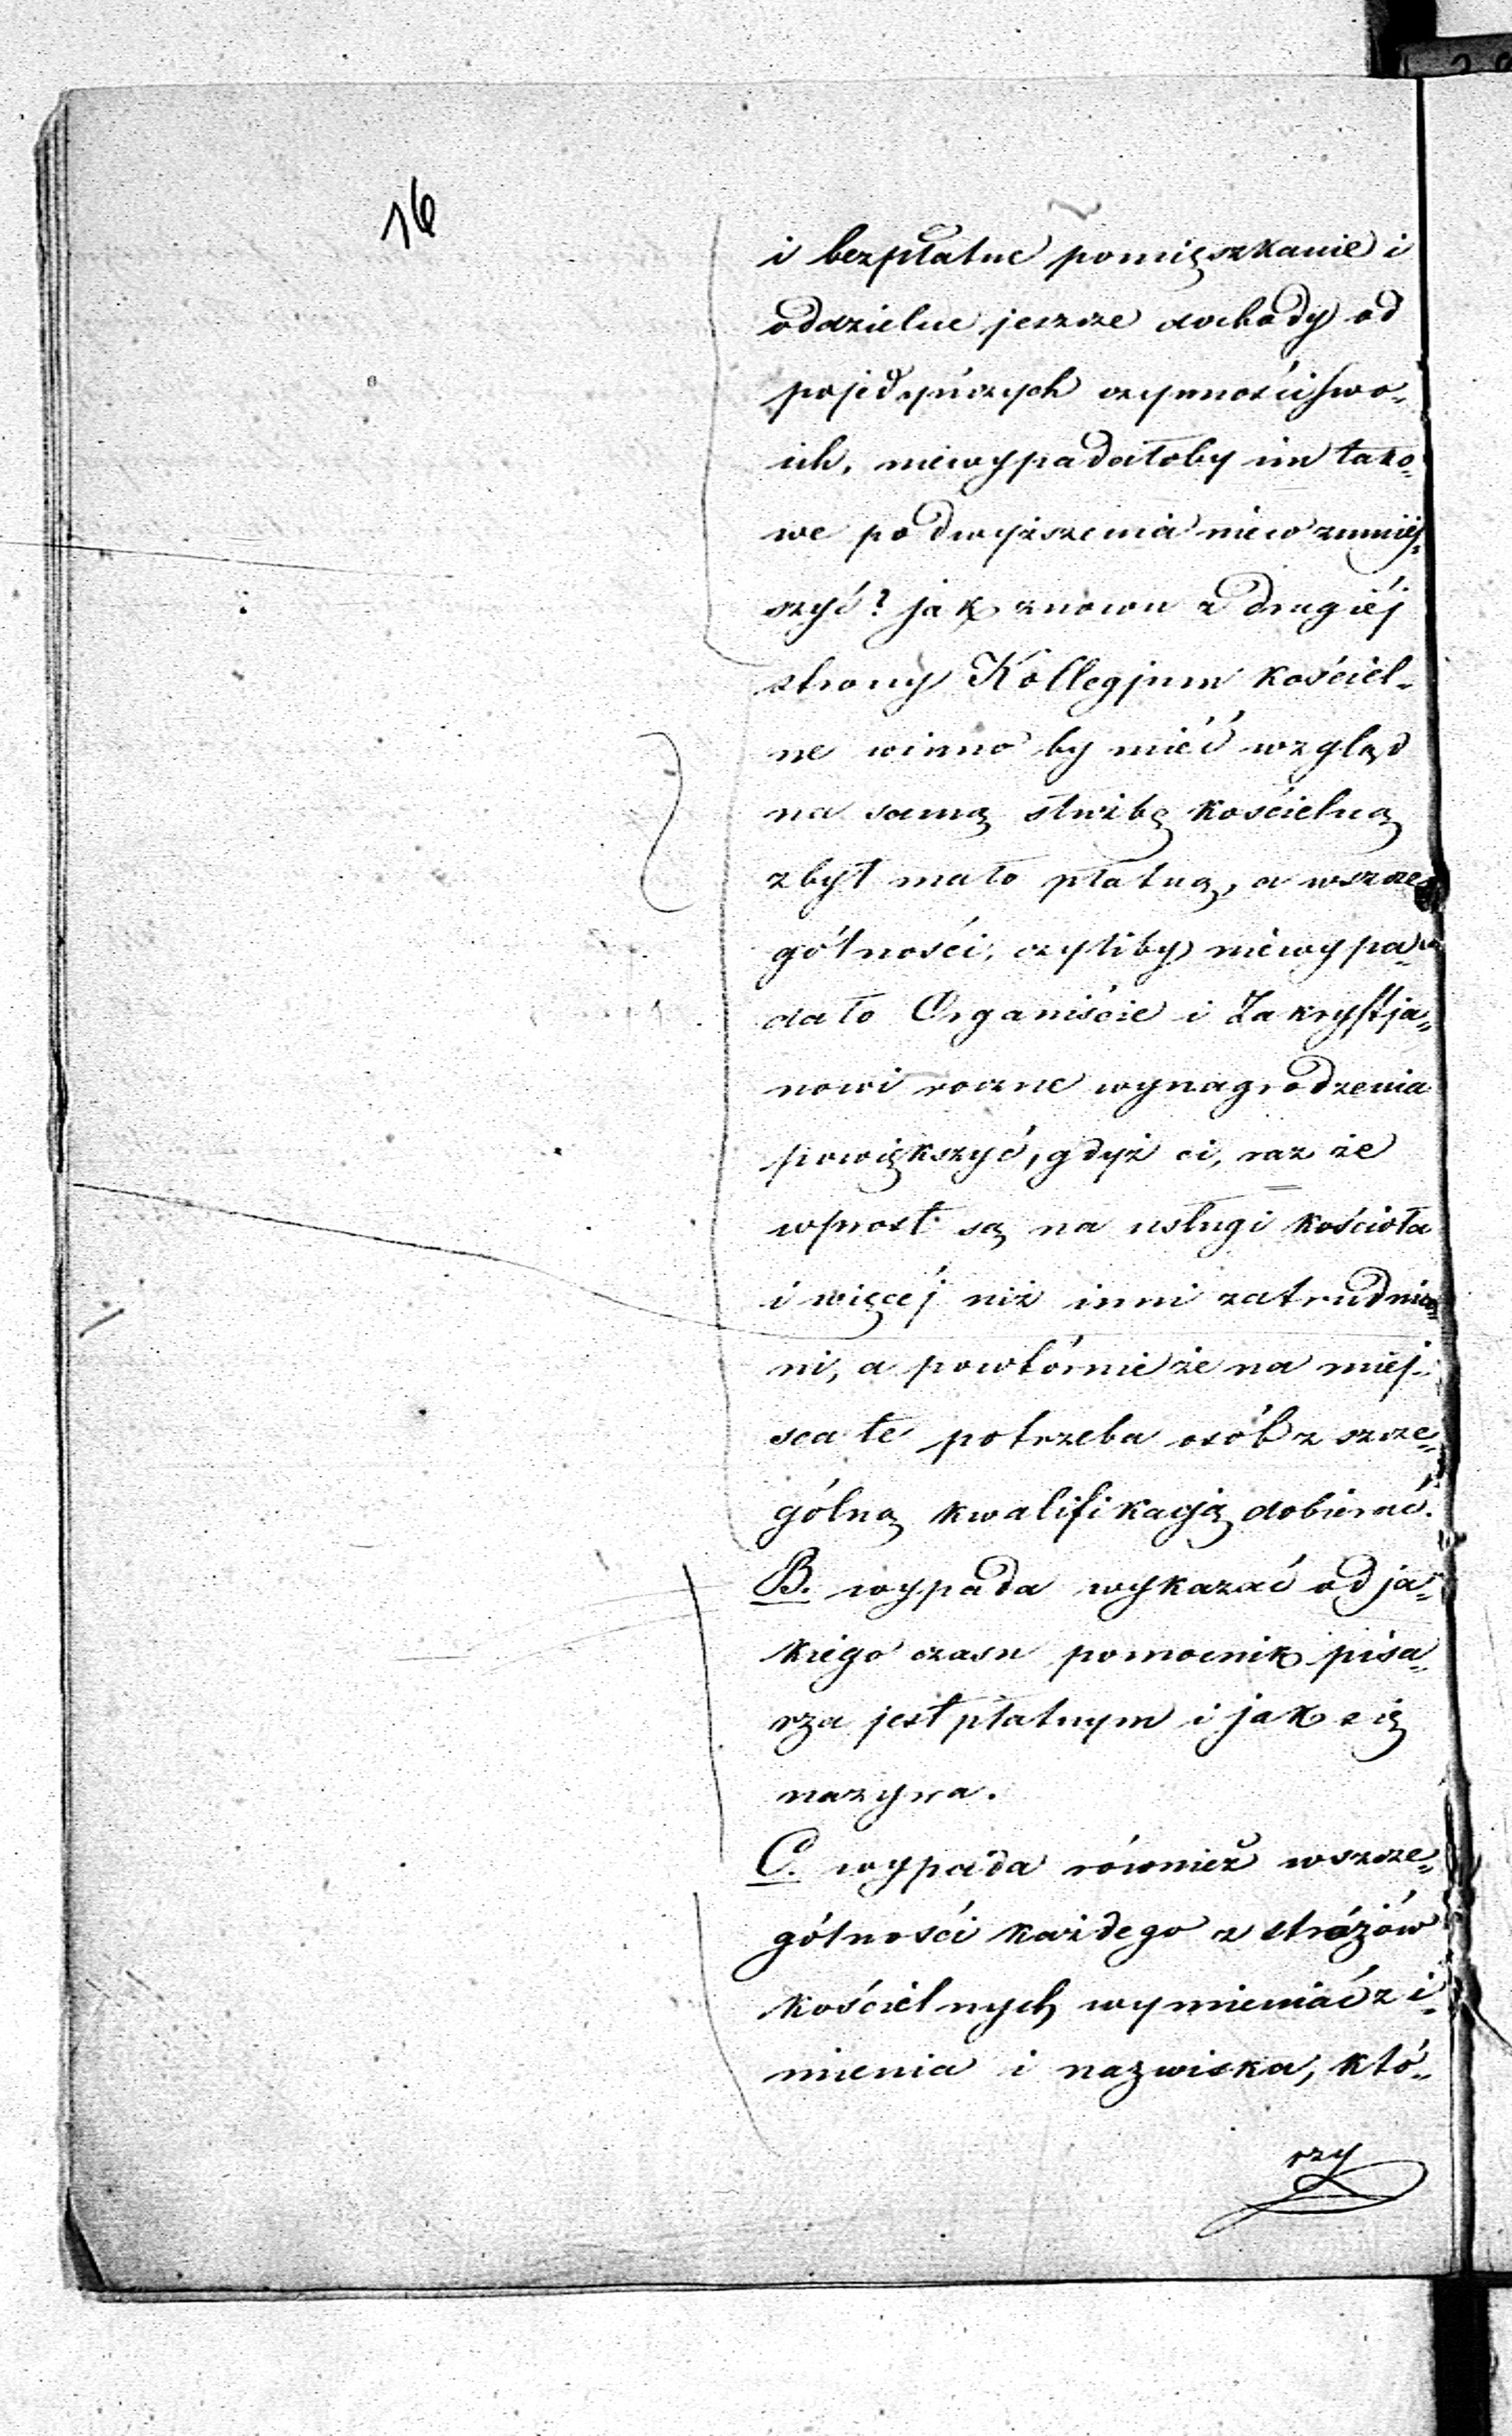 16
i bezpłatne pomięszkanie i
oddzielne jeszcze dochody od
pojedyńczych czynności swo-
ich, niewypadałoby im tako-
we podwyższenia nieco zmniej-
szyć? jak znowu z drugiéj
strony Kollegjum kościel-
ne winno by mieć wzgląd
na samą służbę kościelną
zbyt mało płatną, a wszcze-
gólności, czyliby niewypa-
dało Organiście i Zakrystja-
nowi roczne wynagrodzenia
powiększyć, gdyż ci, raz że
wprost są na usługi kościoła
i więcéj niż inni zatrudnie-
ni, a powtórnie że na miej-
sca te potrzeba osób z szcze-
gólną kwalifikacją dobierać.
B. wypada wykazać od ja-
kiego czasu pomocnik pisa-
rza jest płatnym i jak się
nazywa.
C. wypada również wszcze-
gólności każdego z stróżów
kościelnych wymieniać z i-
mienia i nazwiska, któ-
rzy